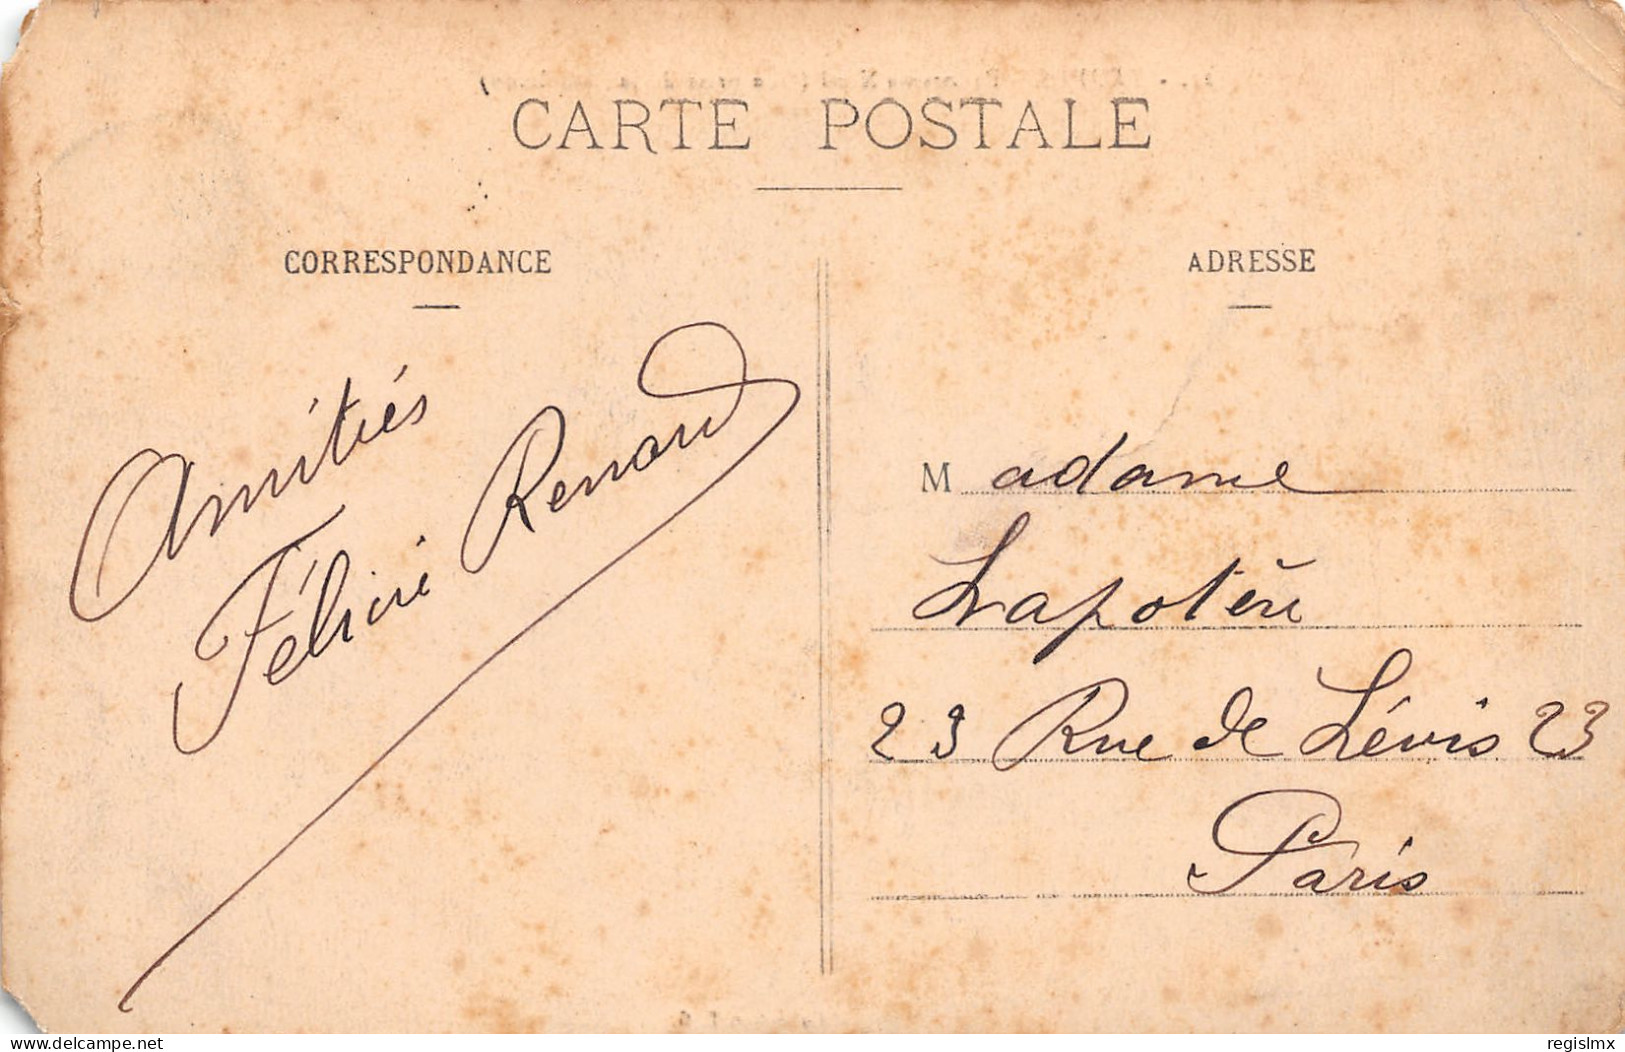 CARTE POSTALE
CORRESPONDANCE
Amitiés
Félicie Renaud
ADRESSE
Madame
Lapotère
23 Rue de Lévis 23
Paris
delcampe.net
regislmx